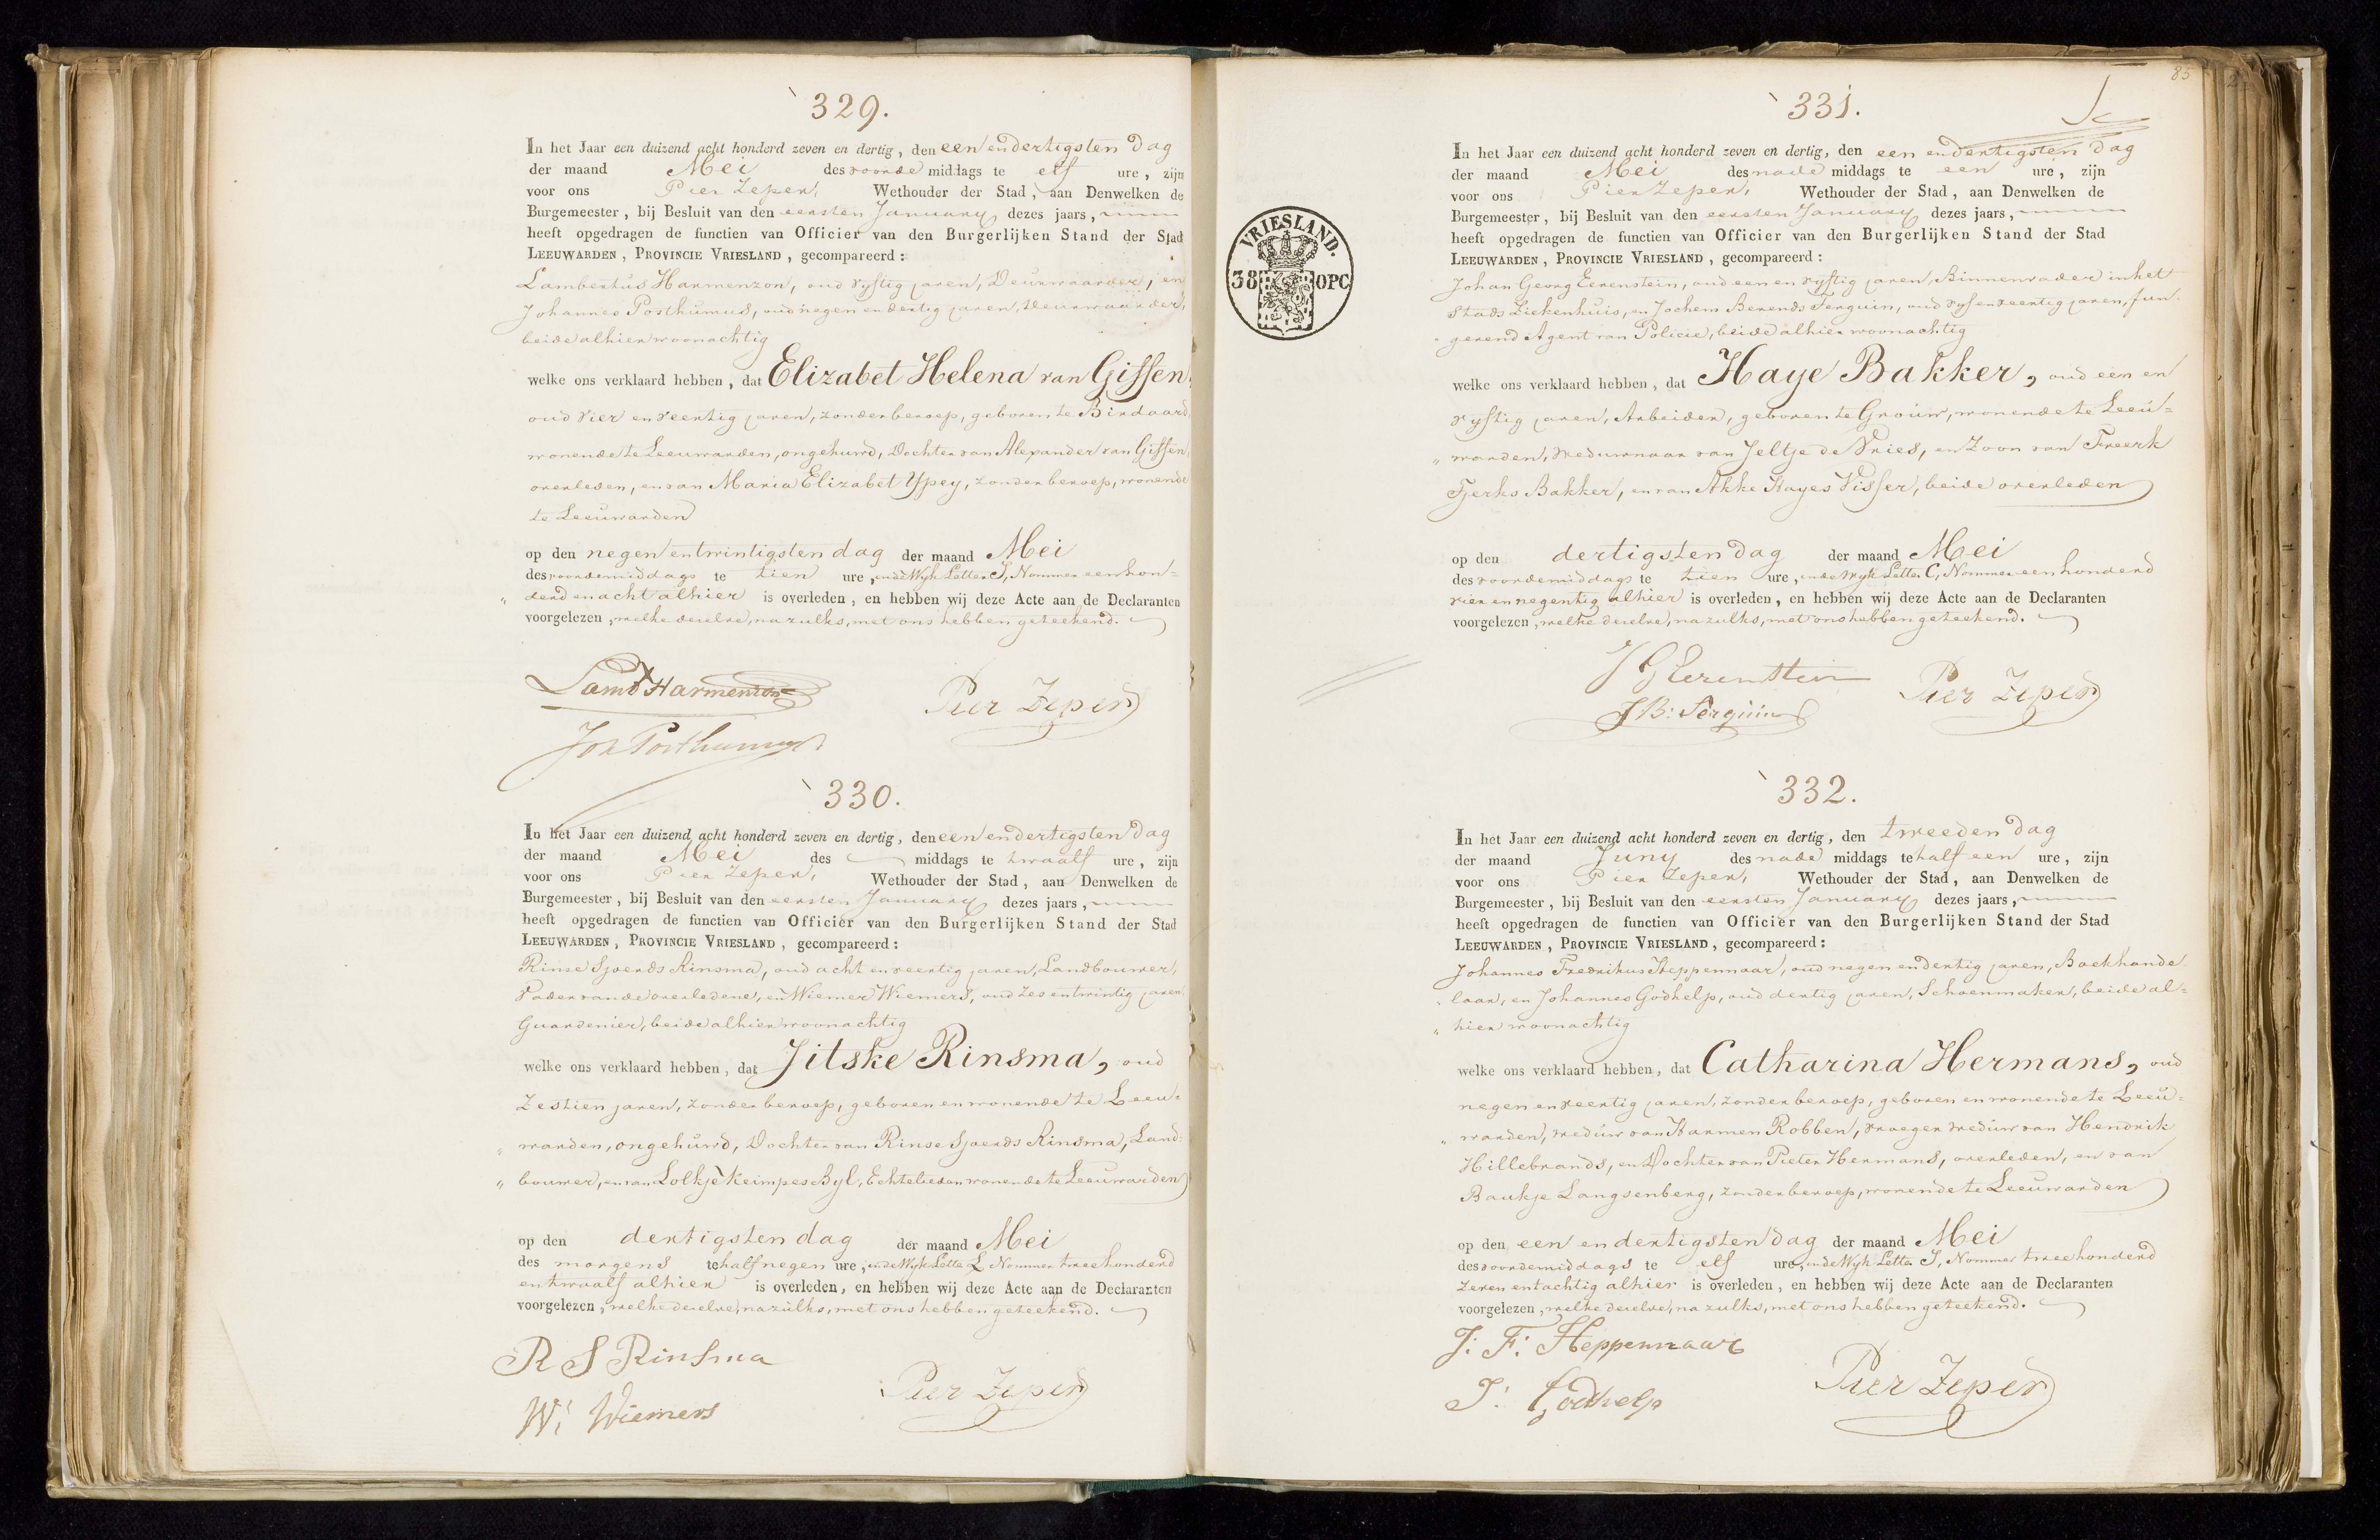 329.
In het Jaar een duizend acht honderd zeven en dertig, den een en dertigsten dag
der maand Mei des voorde middags te elf ure, zijn
voor ons Pier Zeper, Wethouder der Stad, aan Denwelken de
Burgemeester, bij Besluit van den eersten January dezes jaars,
heeft opgedragen de functien van Officier van den Burgerlijken Stand der Stad
LEEUWARDEN, PROVINCIE VRIESLAND, gecompareerd:
Lambertus Harmenzon, oud vyftig jaren, Deurwaarder, en
Johannes Posthumus, oud negen en dertig jaren, Deurwaarder,
beide alhier woonachtig
welke ons verklaard hebben, dat Elizabet Helena van Giffen,
oud vier en veertig jaren, zonder beroep, geboren te Birdaard,
wonende te Leeuwarden, ongehuwd, Dochter van Alexander van Giffen,
overleden, en van Maria Elizabet Ypey, zonder beroep, wonende
te Leeuwarden
op den negen en twintigsten dag der maand Mei
des voordemiddags te tien ure, in de Wyk Letter I, Nommer een hon=
„ derd en acht alhier is overleden, en hebben wij deze Acte aan de Declaranten
voorgelezen, welke dezelve, na zulks, met ons hebben geteekend.
Lamb Harmenzon
Pier Zeper
Joh Posthumus
330.
In het Jaar een duizend acht honderd zeven en dertig, den een en dertigsten dag
der maand Mei des middags te twaalf ure, zijn
voor ons Pier Zeper, Wethouder der Stad, aan Denwelken de
Burgemeester, bij Besluit van den eersten January dezes jaars,
heeft opgedragen de functien van Officier van den Burgerlijken Stand der Stad
LEEUWARDEN, PROVINCIE VRIESLAND, gecompareerd:
Rinse Sjoerds Rinsma, oud acht en veertig jaren, Landbouwer,
Vader van de overledene, en Wiemer Wiemers, oud zes en twintig jaren,
Guardenier, beide alhier woonachtig
welke ons verklaard hebben, dat Jitske Rinsma, oud
zestien jaren, zonder beroep, geboren en wonende te Leeu=
„ warden, ongehuwd, Dochter van Rinse Sjoerds Rinsma, Land=
„ bouwer, en van Lolkje Keimpes Byl, Echtelieden wonende te Leeuwarden
op den dertigsten dag der maand Mei
des morgens te half negen ure, in de Wyk Letter L Nommer twee honderd
en twaalf alhier is overleden, en hebben wij deze Acte aan de Declaranten
voorgelezen, welke dezelve, na zulks, met ons hebben geteekend.
R S Rinsma
W: Wiemers
Pier Zeper
85
331.
VRIESLAND.
38 OPC
In het Jaar een duizend acht honderd zeven en dertig, den een en dertigsten dag
der maand Mei des nade middags te een ure, zijn
voor ons Pier Zeper, Wethouder der Stad, aan Denwelken de
Burgemeester, bij Besluit van den eersten January dezes jaars,
heeft opgedragen de functien van Officier van den Burgerlijken Stand der Stad
LEEUWARDEN, PROVINCIE VRIESLAND, gecompareerd:
Johan Georg Eerenstein, oud een en vyftig jaren, Binnenvader in het
Stads Ziekenhuis, en Jochem Berends Serquin, oud vyf en veertig jaren, fun=
„ gerend Agent van Policie, beide alhier woonachtig
welke ons verklaard hebben, dat Haye Bakker, oud een en
vyftig jaren, Arbeider, geboren te Grouw, wonende te Leeu=
„ warden, Weduwnaar van Jeltje de Vries, en Zoon van Freerk
Tjerks Bakker, en van Akke Hayes Visser, beide overleden
op den dertigsten dag der maand Mei
des voordemiddags te tien ure, in de Wyk Letter C, Nommer een honderd
vier en negentig alhier is overleden, en hebben wij deze Acte aan de Declaranten
voorgelezen, welke dezelve, na zulks, met ons hebben geteekend.
J G Eerenstein
Pier Zeper
J B: Serquin
332.
In het Jaar een duizend acht honderd zeven en dertig, den tweeden dag
der maand Juny des nade middags te half een ure, zijn
voor ons Pier Zeper, Wethouder der Stad, aan Denwelken de
Burgemeester, bij Besluit van den eersten January dezes jaars,
heeft opgedragen de functien van Officier van den Burgerlijken Stand der Stad
LEEUWARDEN, PROVINCIE VRIESLAND, gecompareerd:
Johannes Fredrikus Heppennaar, oud negen en dertig jaren, Boekhande
„ laar, en Johannes Godhelp, oud dertig jaren, Schoenmaker, beide al=
„ hier woonachtig
welke ons verklaard hebben, dat Catharina Hermans, oud
negen en veertig jaren, zonder beroep, geboren en wonende te Leeu=
„ warden, weduw van Harmen Robben, vroeger weduw van Hendrik
Hillebrands, en Dochter van Pieter Hermans, overleden, en van
Baukje Langsenberg, zonder beroep, wonende te Leeuwarden
op den een en dertigsten dag der maand Mei
des voordemiddags te elf ure, in de Wyk Letter I, Nommer twee honderd
zeven en tachtig alhier is overleden, en hebben wij deze Acte aan de Declaranten
voorgelezen, welke dezelve, na zulks, met ons hebben geteekend.
J: F: Heppennaar
J: Godhelp
Pier Zeper